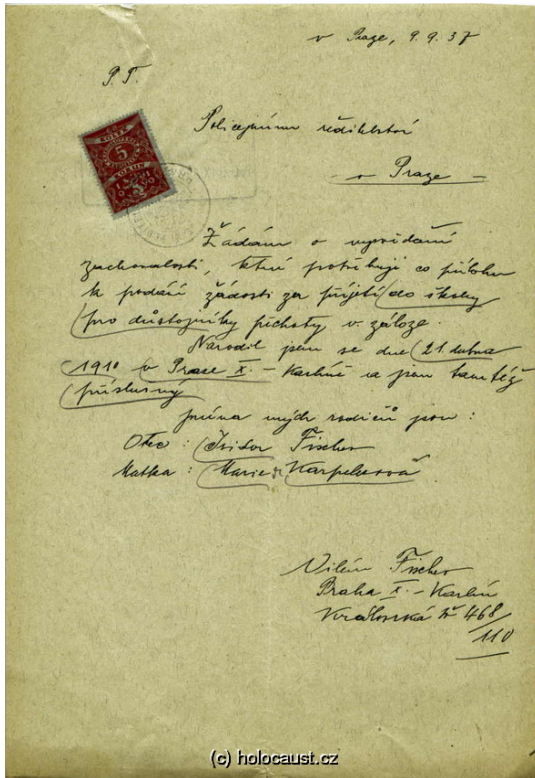 v Praze, 9. 9. 37
P. T.
Policejnímu ředitelství
v Praze
KOLEK
5
KORUN
Žádám o vysvědčení
zachovalosti, které potřebuji co přílohu
k podání žádosti za přijetí do školy
pro důstojníky pěchoty v záloze.
Narodil jsem se dne 21. dubna
1910 v Praze X. - Karlíně a jsem tamtéž
příslušný
jména mých rodičů jsou:
Otec: Isidor Fischer
Matka: Marie Karpelesová
Vilém Fischer
Praha X. - Karlín
Královská tř 468/110
(c) holocaust.cz